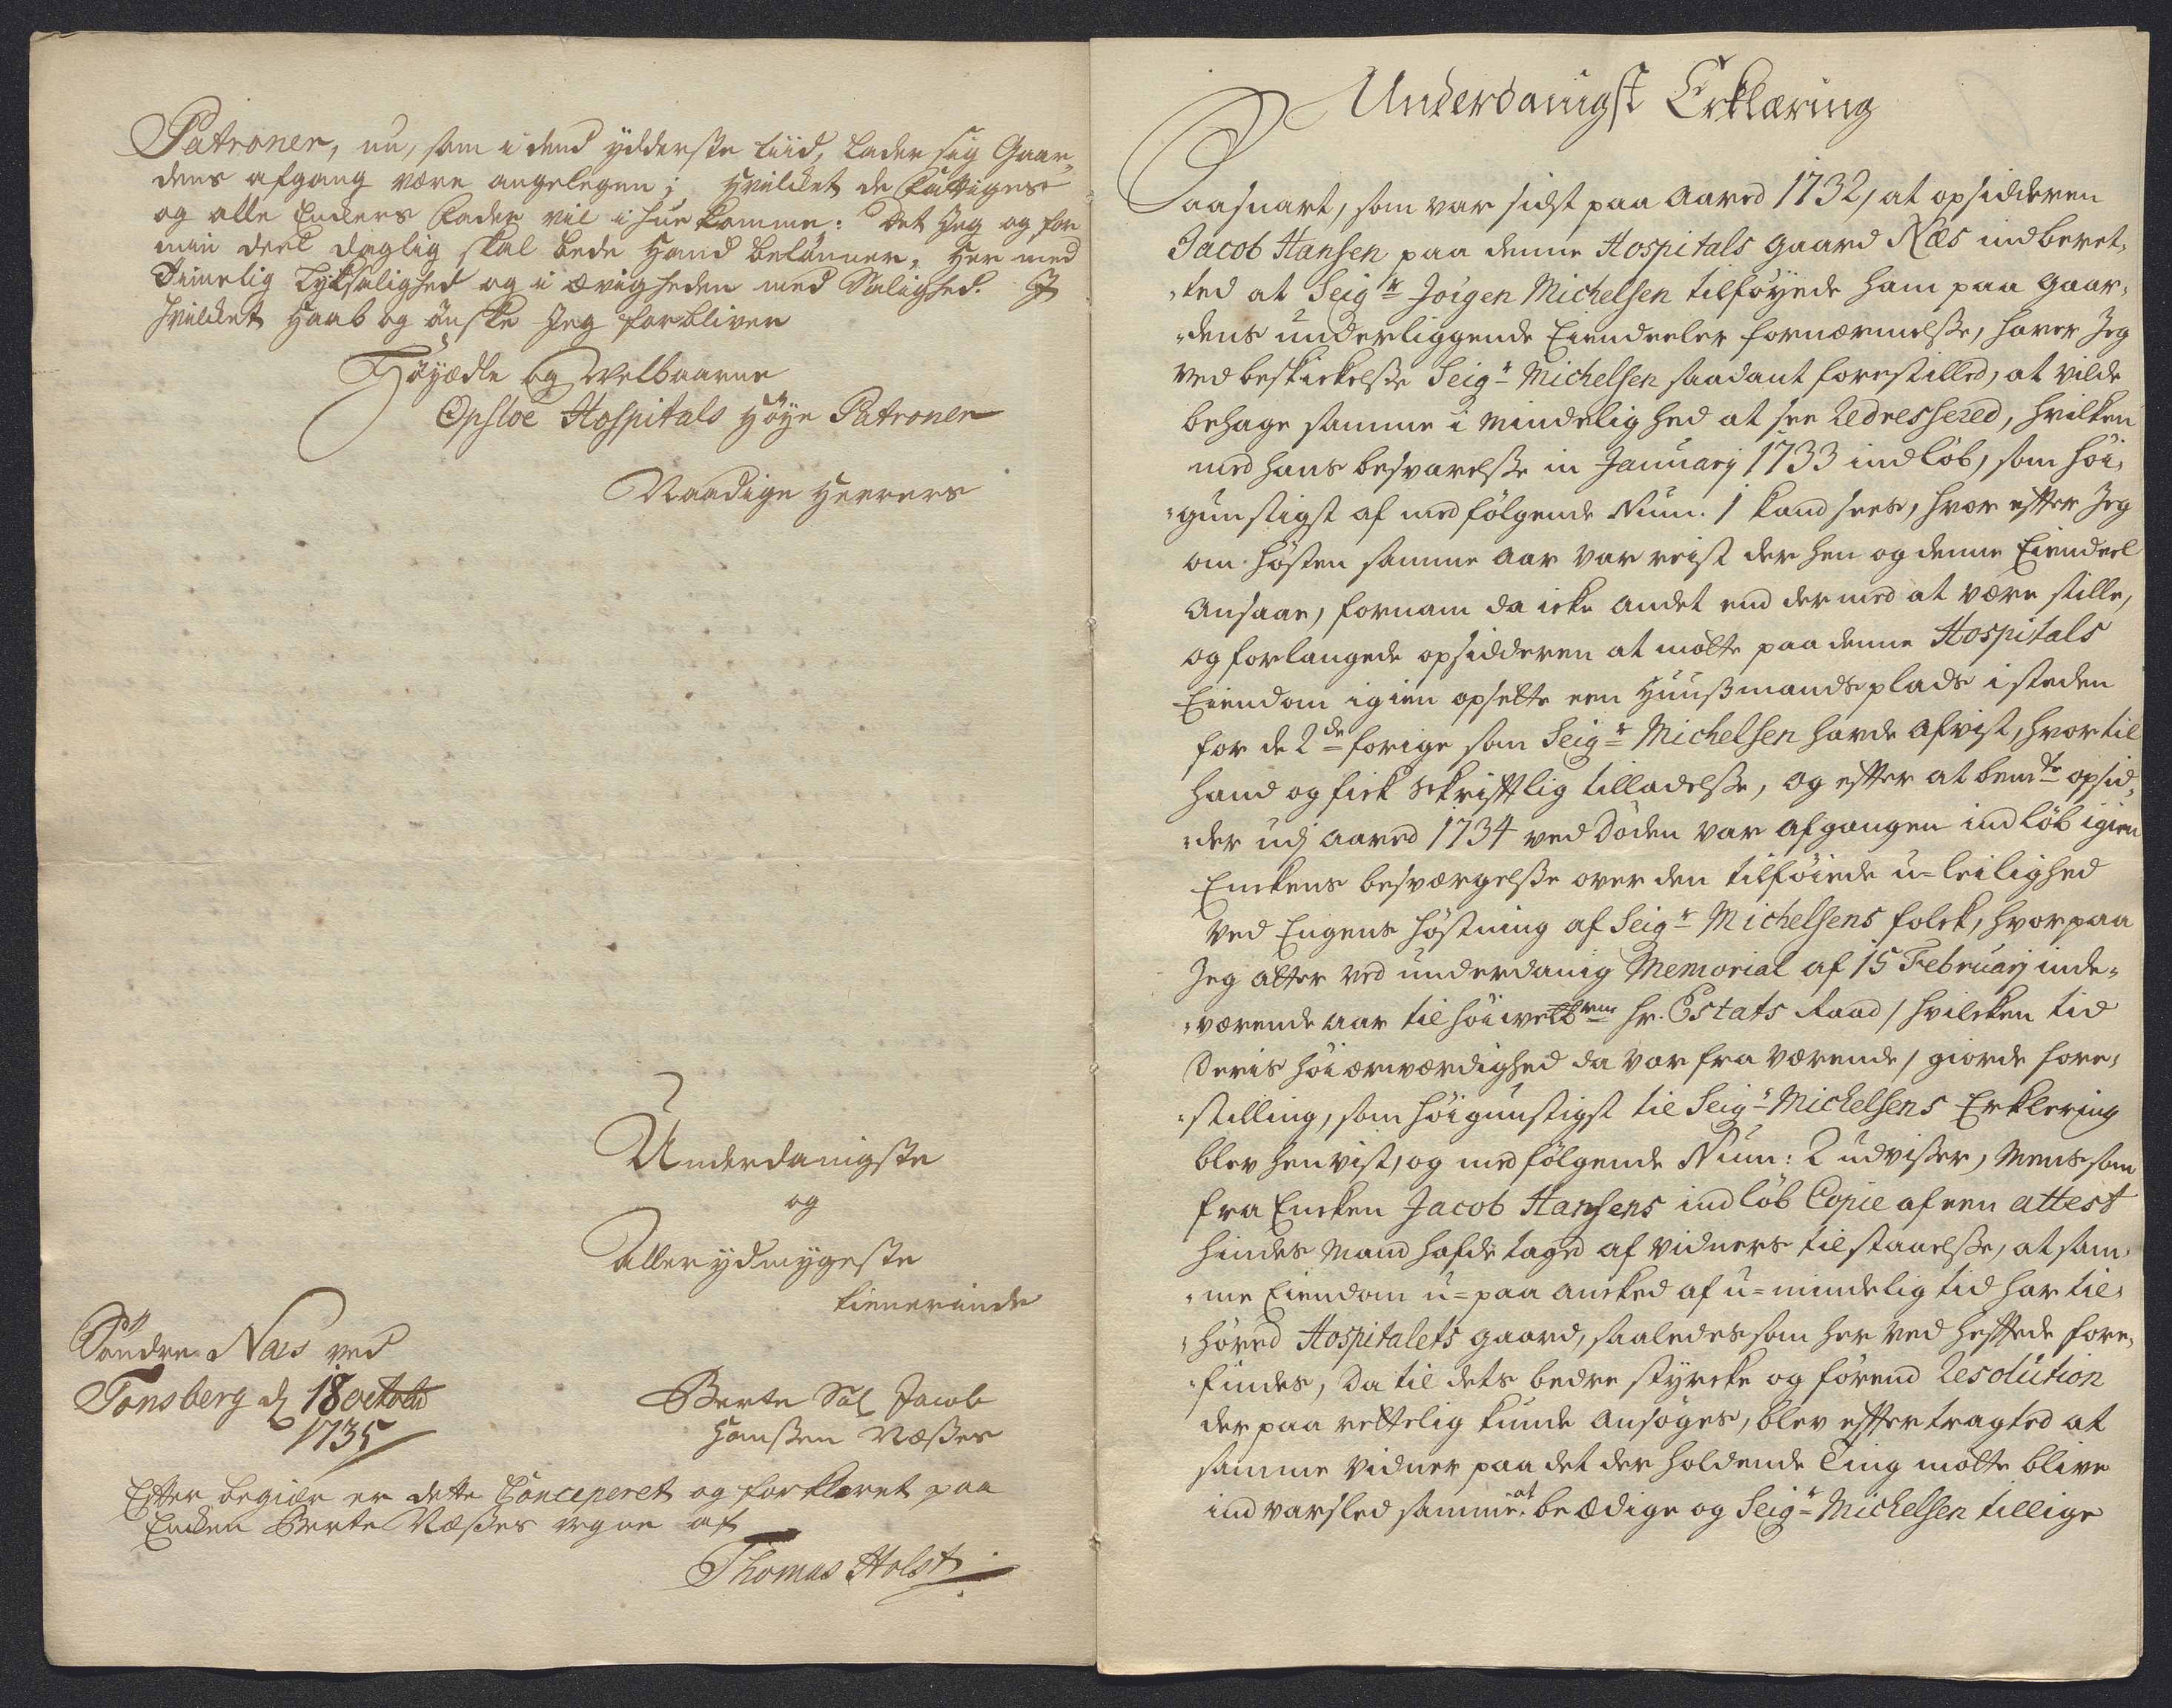 Patroner, nu, som i dend ydderste tiid, lader sig Gaar„
dens afgang være angelegen; hvilcket de Fattiges
og alle Enckers Fader vil ihuekomme: Det Jeg og for
min deel daglig skal bede Hand belønner, her med
Timelig Lyksalighed og i ævigheden med Salighed. I
hvilcket Haab og ønske Jeg forbliver
Høyædle og Welbaarne
Opsloe Hospitals Høye Patroner
Naadige Herrers
Underdanigste
og
Allerydmygeste
tienerinde
Søndre Næs ved
Tonsberg d 18 octobr
1735
Berte Sal Jacob
Hanssen Næsses
Efter begiær er dette Conciperet og forklaret paa
Encken Berte Næsses vegne af
Thomas Holst
Underdanigst Erklæring
Saasnart, som var sidst paa Aared 1732, at opsidderen
Jacob Hansen paa denne Hospitals gaard Næs indberet„
„ted at Seigr Jörgen Michelsen tilføyede ham paa gaar„
„dens underliggende Eiendeeler fornærmelsse, haver Jeg
ved beskickelsse Seigr Michelsen saadant forestilled, at vilde
behage samme i Mindelighed at see Redressered, hvilken
med hans besvarelsse in Januarij 1733 indløb, som høi„
„gunstigst af medfølgende Num. 1 kand sees, hvor effter Jeg
om høsten samme Aar var reist der hen og denne Eiendeel
Ansaae, fornam da icke andet end dermed at være stille,
og forlangede opsidderen at motte paa denne Hospitals
Eiendom igien opsette een Huusmandsplads i steden
for de 2de forige som Seigr Michelsen havde afvist, hvortil
hand og fick Skrifftlig tilladelsse, og effter at bemte opsid„
„der udj Aared 1734 ved Døden var afgangen indløb igien
Enckens besværgelsse over den tilføiede u-leilighed
ved Engens høstning af Seigr Michelsens folck, hvorpaa
Jeg atter ved underdanig Memorial af 15 Februarj inde„
„værende Aar til høiwelbrne Hr. Estats Raad / hvilcken tid
Deris høiærværdighed da var fraværende / giorde fore„
„stilling, som høigunstigst til Seigr Michelsens Erklering
blev henvist, og medfølgende Num: 2 udvisser, Mens som
fra Encken Jacob Hansens indløb Copie af een attest
hindes Mand hafde taged af vidners tilstaaelsse, at sam„
„me Eiendom u-paa ancked af u-mindelig tid har til„
„høred Hospitalets gaard, saaledes som her ved hefftede fore„
„findes, Da til dets bedre styrcke og førend Resolution
der paa rettelig kunde ansøges, blev efftertragted at
samme vidner paa det der holdende Ting motte blive
indvarsled samme at beædige og Seigr Michelsen tillige